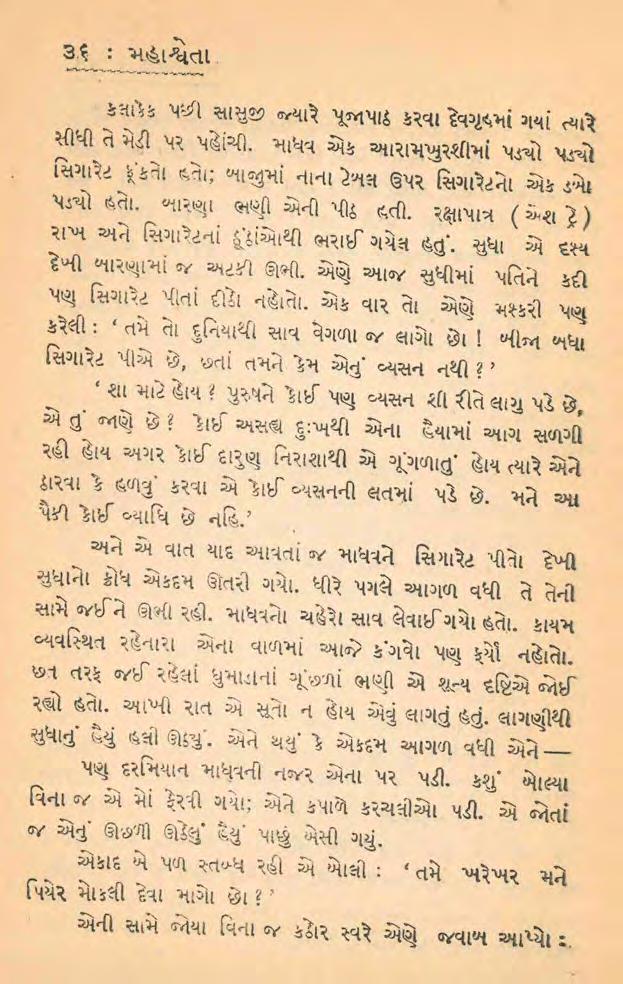 ૩૬ : મહાશ્વેતા
કલાકેક પછી સાસુજી જ્યારે પૂજાપાઠ કરવા દેવગૃહમાં ગયાં ત્યારે
સીધી તે મેડી પર પહેાંચી. માધવ એક આરામખુરશીમાં પડ્યો પડ્યો
સિગારેટ ફૂંકતેા હતેા; બાજુમાં નાના ટેબલ ઉપર સિગારેટનેા એક ડબેા
પડ્યો હતેા. બારણા ભણી એની પીઠ હતી. રક્ષાપાત્ર ( ઍશ ટ્રે )
રાખ અને સિગારેટનાં ઠૂંઠાંએાથી ભરાઈ ગયેલ હતું. સુધા એ દૃશ્ય
દેખી બારણામાં જ અટકી ઊભી. એણે આજ સુધીમાં પતિને કદી
પણ સિગારેટ પીતાં દીઠેા નહેાતેા. એક વાર તેા એણે મશ્કરી પણ
કરેલી : ‘ તમે તેા દુનિયાથી સાવ વેગળા જ લાગેા છેા ! બીજા બધા
સિગારેટ પીએ છે, છતાં તમને કેમ એનું વ્યસન નથી ? ’
‘ શા માટે હેાય ? પુરુષને કેાઈ પણ વ્યસન શી રીતે લાગુ પડે છે,
એ તું જાણે છે ? કેાઈ અસહ્ય દુઃખથી એના હૈયામાં આગ સળગી
રહી હેાય અગર કેાઈ દારુણ નિરાશાથી એ ગૂંગળાતું હેાય ત્યારે એને
ઠારવા કે હળવું કરવા એ કેાઈ વ્યસનની લતમાં પડે છે. મને આ
પૈકી કેાઈ વ્યાધિ છે નહિ.’
અને એ વાત યાદ આવતાં જ માધવને સિગારેટ પીતેા દેખી
સુધાનેા ક્રોધ એકદમ ઊતરી ગયેા. ધીરે પગલે આગળ વધી તે તેની
સામે જઈને ઊભી રહી. માધવનેા ચહેરેા સાવ લેવાઈ ગયેા હતેા. કાયમ
વ્યવસ્થિત રહેનારા એના વાળમાં આજે કંગવેા પણ ફર્યો નહેાતેા.
છત તરફ જઈ રહેલાં ધુમાડાનાં ગૂંછળાં ભણી એ શૂન્ય દૃષ્ટિએ જોઈ
રહ્યો હતેા. આખી રાત એ સૂતેા ન હેાય એવું લાગતું હતું. લાગણીથી
સુધાનું હૈયું હલી ઊઠ્યું. એને થયું કે એકદમ આગળ વધી એને—
પણ દરમિયાન માધવની નજર એના પર પડી. કશું બેાલ્યા
વિના જ એ મેાં ફેરવી ગયેા; એને કપાળે કરચલીએા પડી. એ જોતાં
જ એનું ઊછળી ઊઠેલું હૈયું પાછું બેસી ગયું.
એકાદ બે પળ સ્તબ્ધ રહી એ બેાલી : ‘ તમે ખરેખર મને
પિયેર મેાકલી દેવા માગેા છેા ? ’
એની સામે જોયા વિના જ કઠેાર સ્વરે એણે જવાબ આપ્યેા :